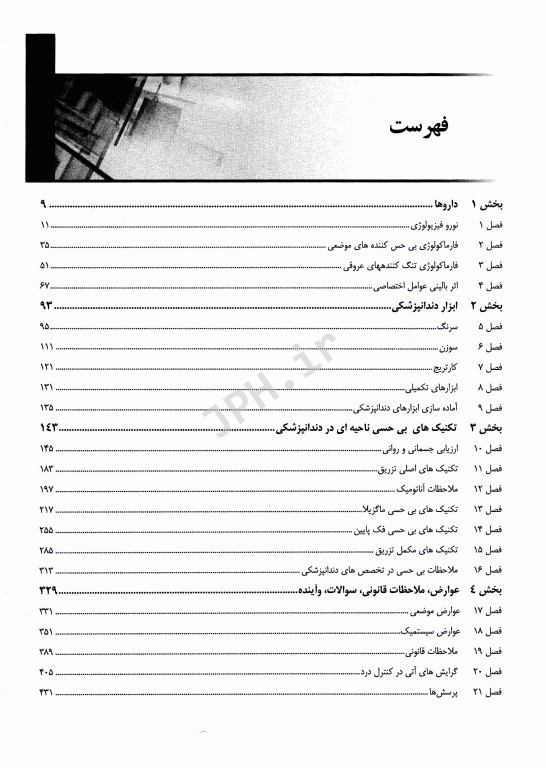 فهرست
بخش ۱ داروها ۹
فصل ۱ نورو فیزیولوژی ۱۱
فصل ۲ فارماکولوژی بی حس کننده های موضعی ۳۵
فصل ۳ فارماکولوژی تنگ کنندههای عروقی ۵۱
فصل ۴ اثر بالینی عوامل اختصاصی ۶۷
بخش ۲ ابزار دندانپزشکی ۹۳
فصل ۵ سرنگ ۹۵
فصل ۶ سوزن ۱۱۱
فصل ۷ کارتریج ۱۲۱
فصل ۸ ابزارهای تکمیلی ۱۳۱
فصل ۹ آماده سازی ابزارهای دندانپزشکی ۱۳۵
بخش ۳ تکنیک های بی حسی ناحیه ای در دندانپزشکی ۱۴۳
فصل ۱۰ ارزیابی جسمانی و روانی ۱۴۵
فصل ۱۱ تکنیک های اصلی تزریق ۱۸۳
فصل ۱۲ ملاحظات آناتومیک ۱۹۷
فصل ۱۳ تکنیک های بی حسی ماگزیلا ۲۱۷
فصل ۱۴ تکنیک های بی حسی فک پایین ۲۵۵
فصل ۱۵ تکنیک های مکمل تزریق ۲۸۵
فصل ۱۶ ملاحظات بی حسی در تخصص های دندانپزشکی ۳۱۳
بخش ۴ عوارض، ملاحظات قانونی، سوالات، وآینده ۳۲۹
فصل ۱۷ عوارض موضعی ۳۳۱
فصل ۱۸ عوارض سیستمیک ۳۵۱
فصل ۱۹ ملاحظات قانونی ۳۸۹
فصل ۲۰ گرایش های آتی در کنترل درد ۴۰۵
فصل ۲۱ پرسش‌ها ۴۳۱
JPH.ir